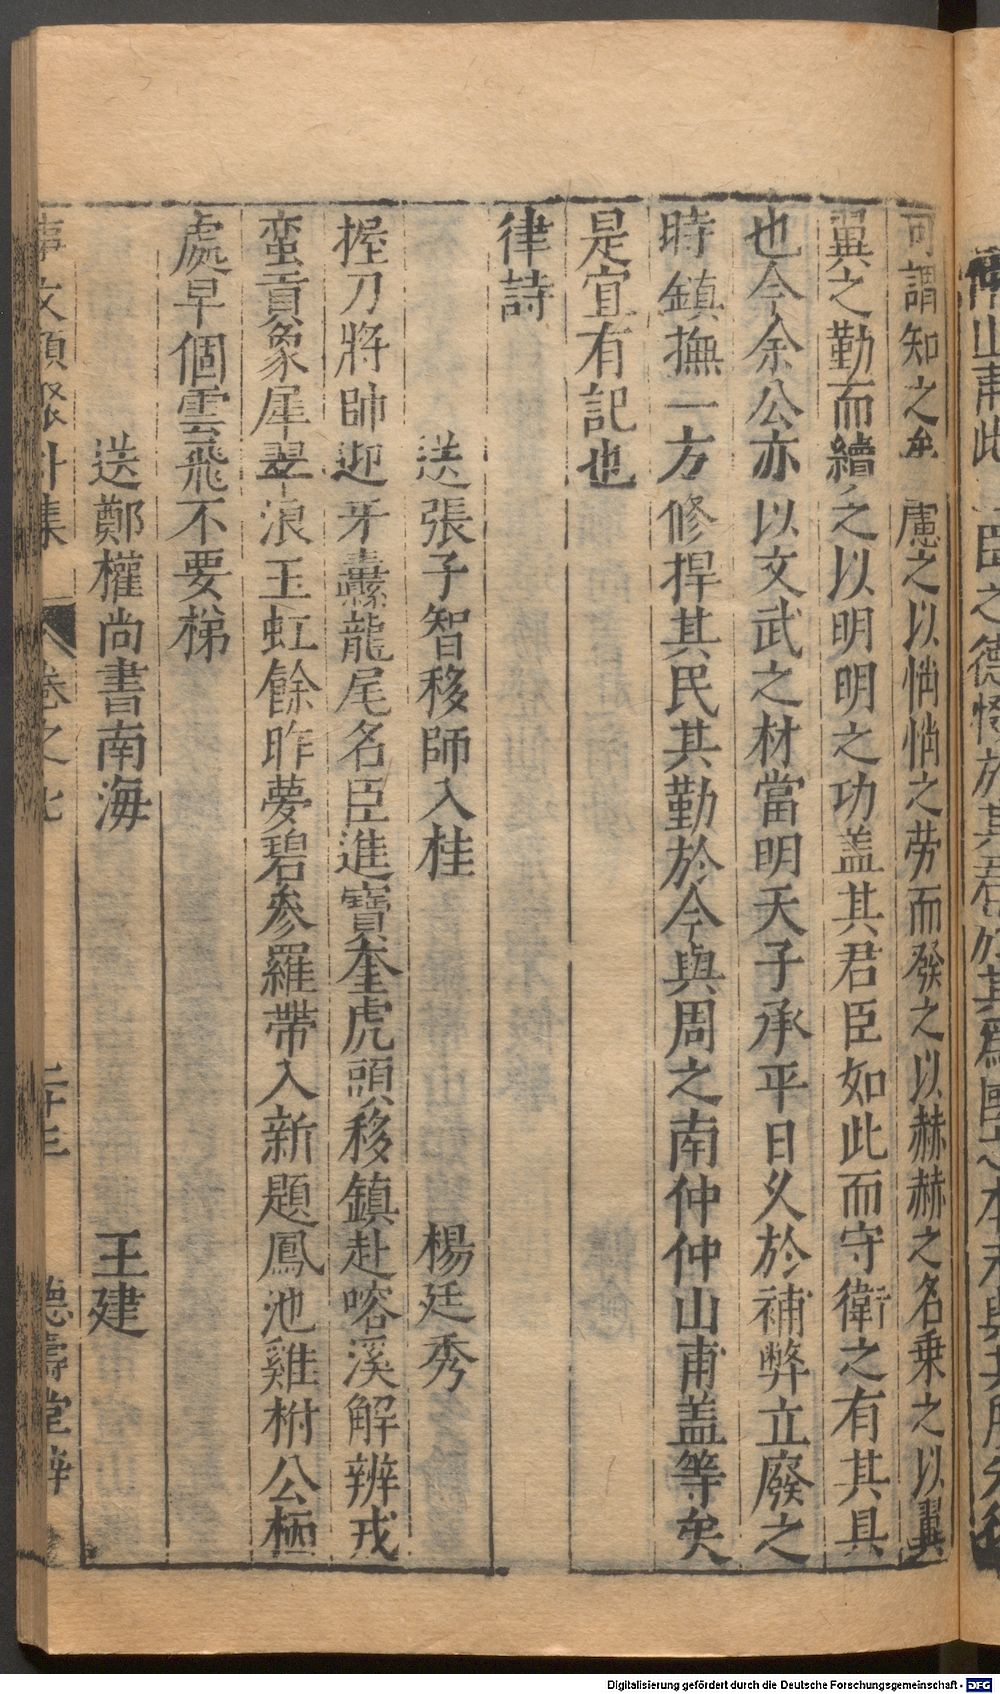 可謂知之矣慮之以悄悄之劳而發之以赫赫之名乗之以翼
翼之勤而續之以明明之功盖其君臣如此而守衛之有其具
也今余公亦以文武之材當明天子承平日乆於補弊立廢之
時鎮撫一方修捍其民其勤於今與周之南仲仲山甫盖等矣
是宜有記也
律詩
送張子智移師入桂 楊廷秀
握刀將帥迎牙纛龍尾名臣進寶奎虎頭移鎮赴㗕溪解辨戎
蛮貢象犀翠浪玉虹餘昨夢碧參羅帶入新題鳳池雞樹公栖
處早個雲飛不要梯
送鄭權尚書南海 王建
事文類聚外集 卷之七 二十三 德壽堂梓
Digitalisierung gefördert durch die Deutsche Forschungsgemeinschaft - DFG